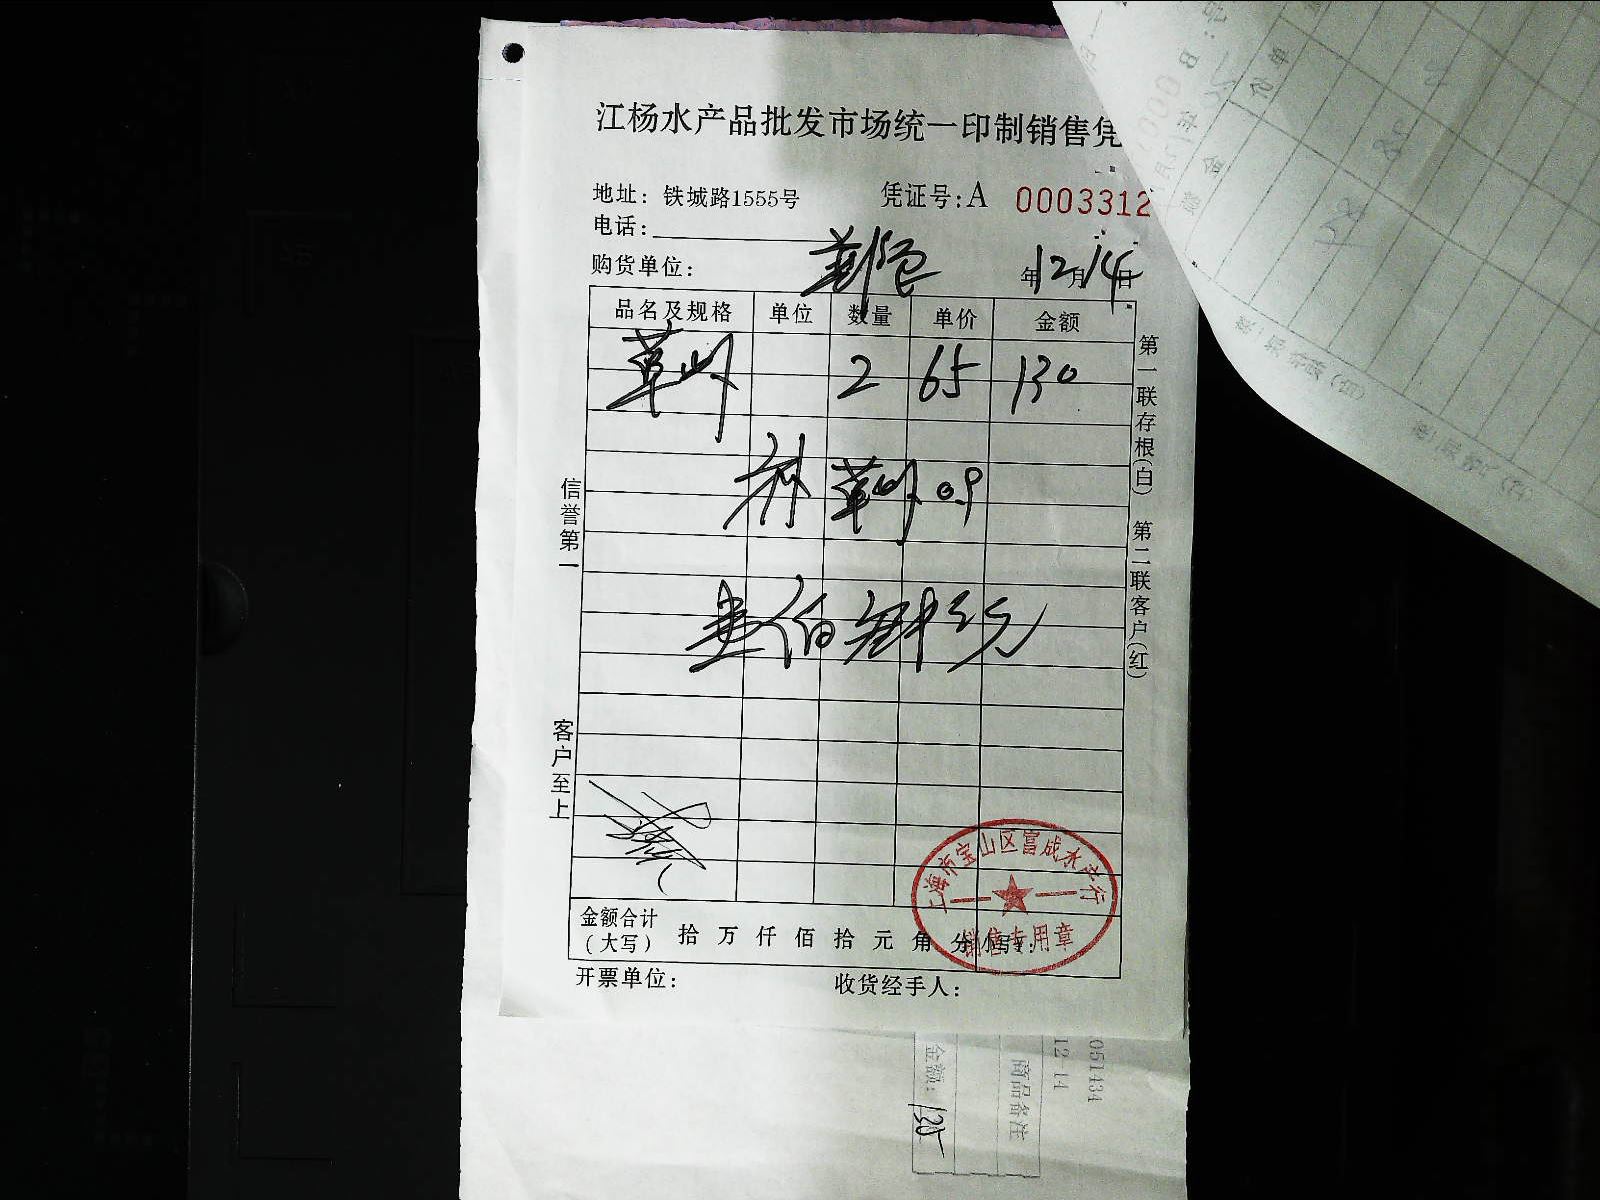 江杨水产品批发市场统一印制销售凭
地址：铁城路1555号
凭证号：A 0003312
电话：
购货单位：
年12月14日
品名及规格 单位 数量 单价 金额
草虾 2 65 130
草虾 0.9
壹佰叁十元
第一联存根(白) 第二联客户(红)
信誉第一
客户至上
上海市宝山区富成水产行
销售专用章
金额合计
（大写） 拾 万 仟 佰 拾 元 角 分 小写：
开票单位：
收货经手人：
051434
12-14
商品备注
金额：